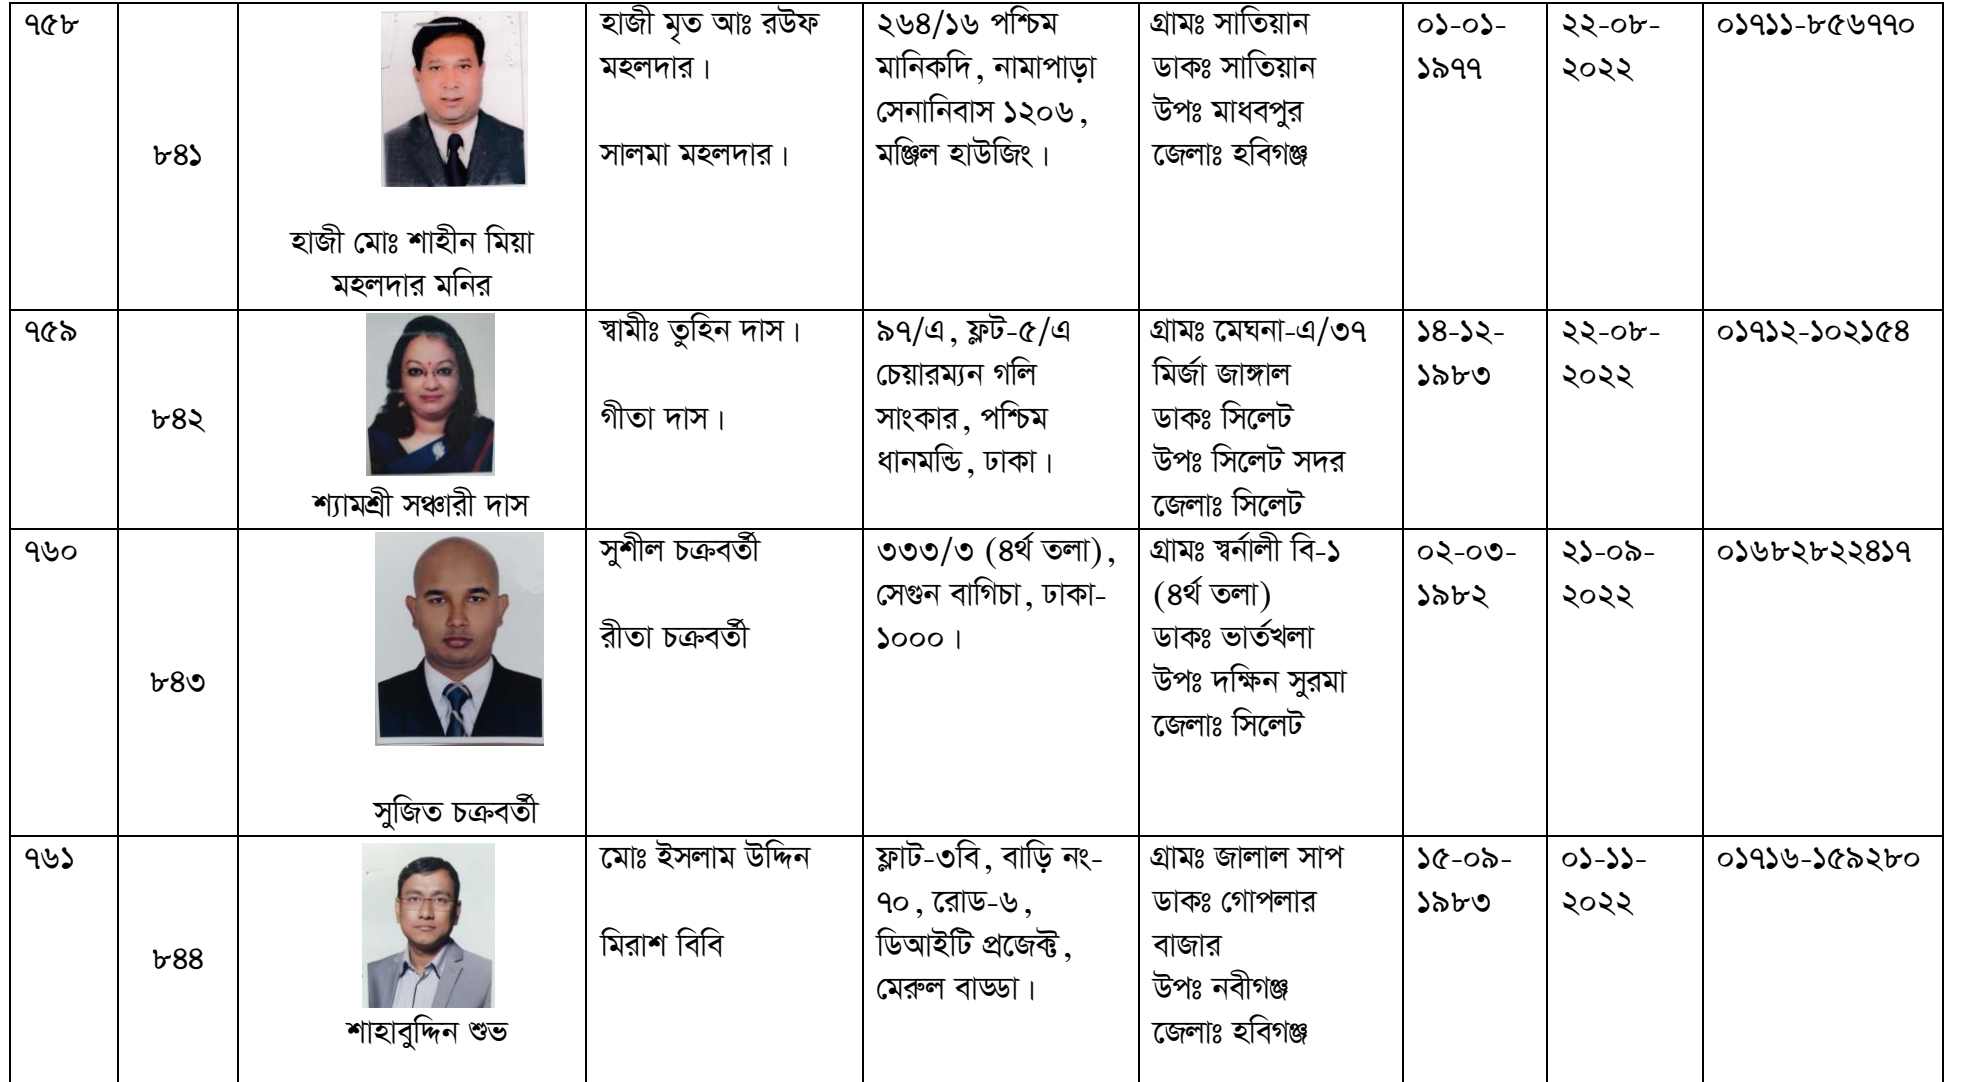 ৭৫৮
৮৪১
হাজী মোঃ শাহীন মিয়া
মহলদার মনির
হাজী মৃত আঃ রউফ
মহলদার।
সালমা মহলদার।
২৬৪/১৬ পশ্চিম
মানিকদি, নামাপাড়া
সেনানিবাস ১২০৬,
মঞ্জিল হাউজিং।
গ্রামঃ সাতিয়ান
ডাকঃ সাতিয়ান
উপঃ মাধবপুর
জেলাঃ হবিগঞ্জ
০১-০১-
১৯৭৭
২২-০৮-
২০২২
০১৭১১-৮৫৬৭৭০
৭৫৯
৮৪২
শ্যামশ্রী সঞ্চারী দাস
স্বামীঃ তুহিন দাস।
গীতা দাস।
৯৭/এ, ফ্লট-৫/এ
চেয়ারম্যন গলি
সাংকার, পশ্চিম
ধানমন্ডি, ঢাকা।
গ্রামঃ মেঘনা-এ/৩৭
মির্জা জাঙ্গাল
ডাকঃ সিলেট
উপঃ সিলেট সদর
জেলাঃ সিলেট
১৪-১২-
১৯৮৩
২২-০৮-
২০২২
০১৭১২-১০২১৫৪
৭৬০
৮৪৩
সুজিত চক্রবর্তী
সুশীল চক্রবর্তী
রীতা চক্রবর্তী
৩৩৩/৩ (৪র্থ তলা),
সেগুন বাগিচা, ঢাকা-
১০০০।
গ্রামঃ স্বর্নালী বি-১
(৪র্থ তলা)
ডাকঃ ভার্তখলা
উপঃ দক্ষিন সুরমা
জেলাঃ সিলেট
০২-০৩-
১৯৮২
২১-০৯-
২০২২
০১৬৮২৮২২৪১৭
৭৬১
৮৪৪
শাহাবুদ্দিন শুভ
মোঃ ইসলাম উদ্দিন
মিরাশ বিবি
ফ্লাট-৩বি, বাড়ি নং-
৭০, রোড-৬,
ডিআইটি প্রজেক্ট,
মেরুল বাড্ডা।
গ্রামঃ জালাল সাপ
ডাকঃ গোপলার
বাজার
উপঃ নবীগঞ্জ
জেলাঃ হবিগঞ্জ
১৫-০৯-
১৯৮৩
০১-১১-
২০২২
০১৭১৬-১৫৯২৮০